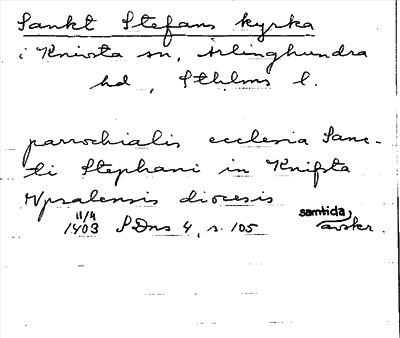 Sankt Stefans kyrka
i Knivsta sn, Ärlinghundra
hd, Sthlms l.
parrochialis ecclesia Sanc-
ti Stephani in Knifsta
Vpsalensis diocesis
11/4
1403 SDns 4, s. 105 samtida
avskr.